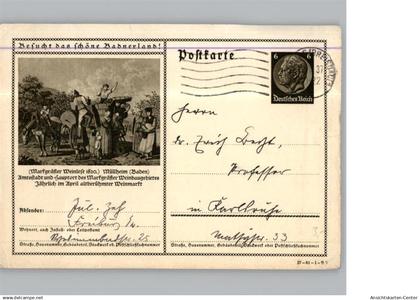 Besucht das schöne Badnerland!
(Markgräfler Weinlese 1820.) Müllheim (Baden)
Amtsstadt und Hauptort des Markgräfler Weinbaugebietes
Jährlich im April altberühmter Weinmarkt
Absender: Jül.
Freiburg
Wohnort, auch Zustell- oder Leitpostamt
28
Straße, Hausnummer, Gebäudeteil, Stockwerk od. Postschließfachnummer
Postkarte
6 6
Deutsches Reich
37
22
Herrn
Dr. Erich
Professor
in Karlsruhe
33
Straße, Hausnummer, Gebäudeteil, Stockwerk oder Postschließfachnummer
Ansichtskarten-Center